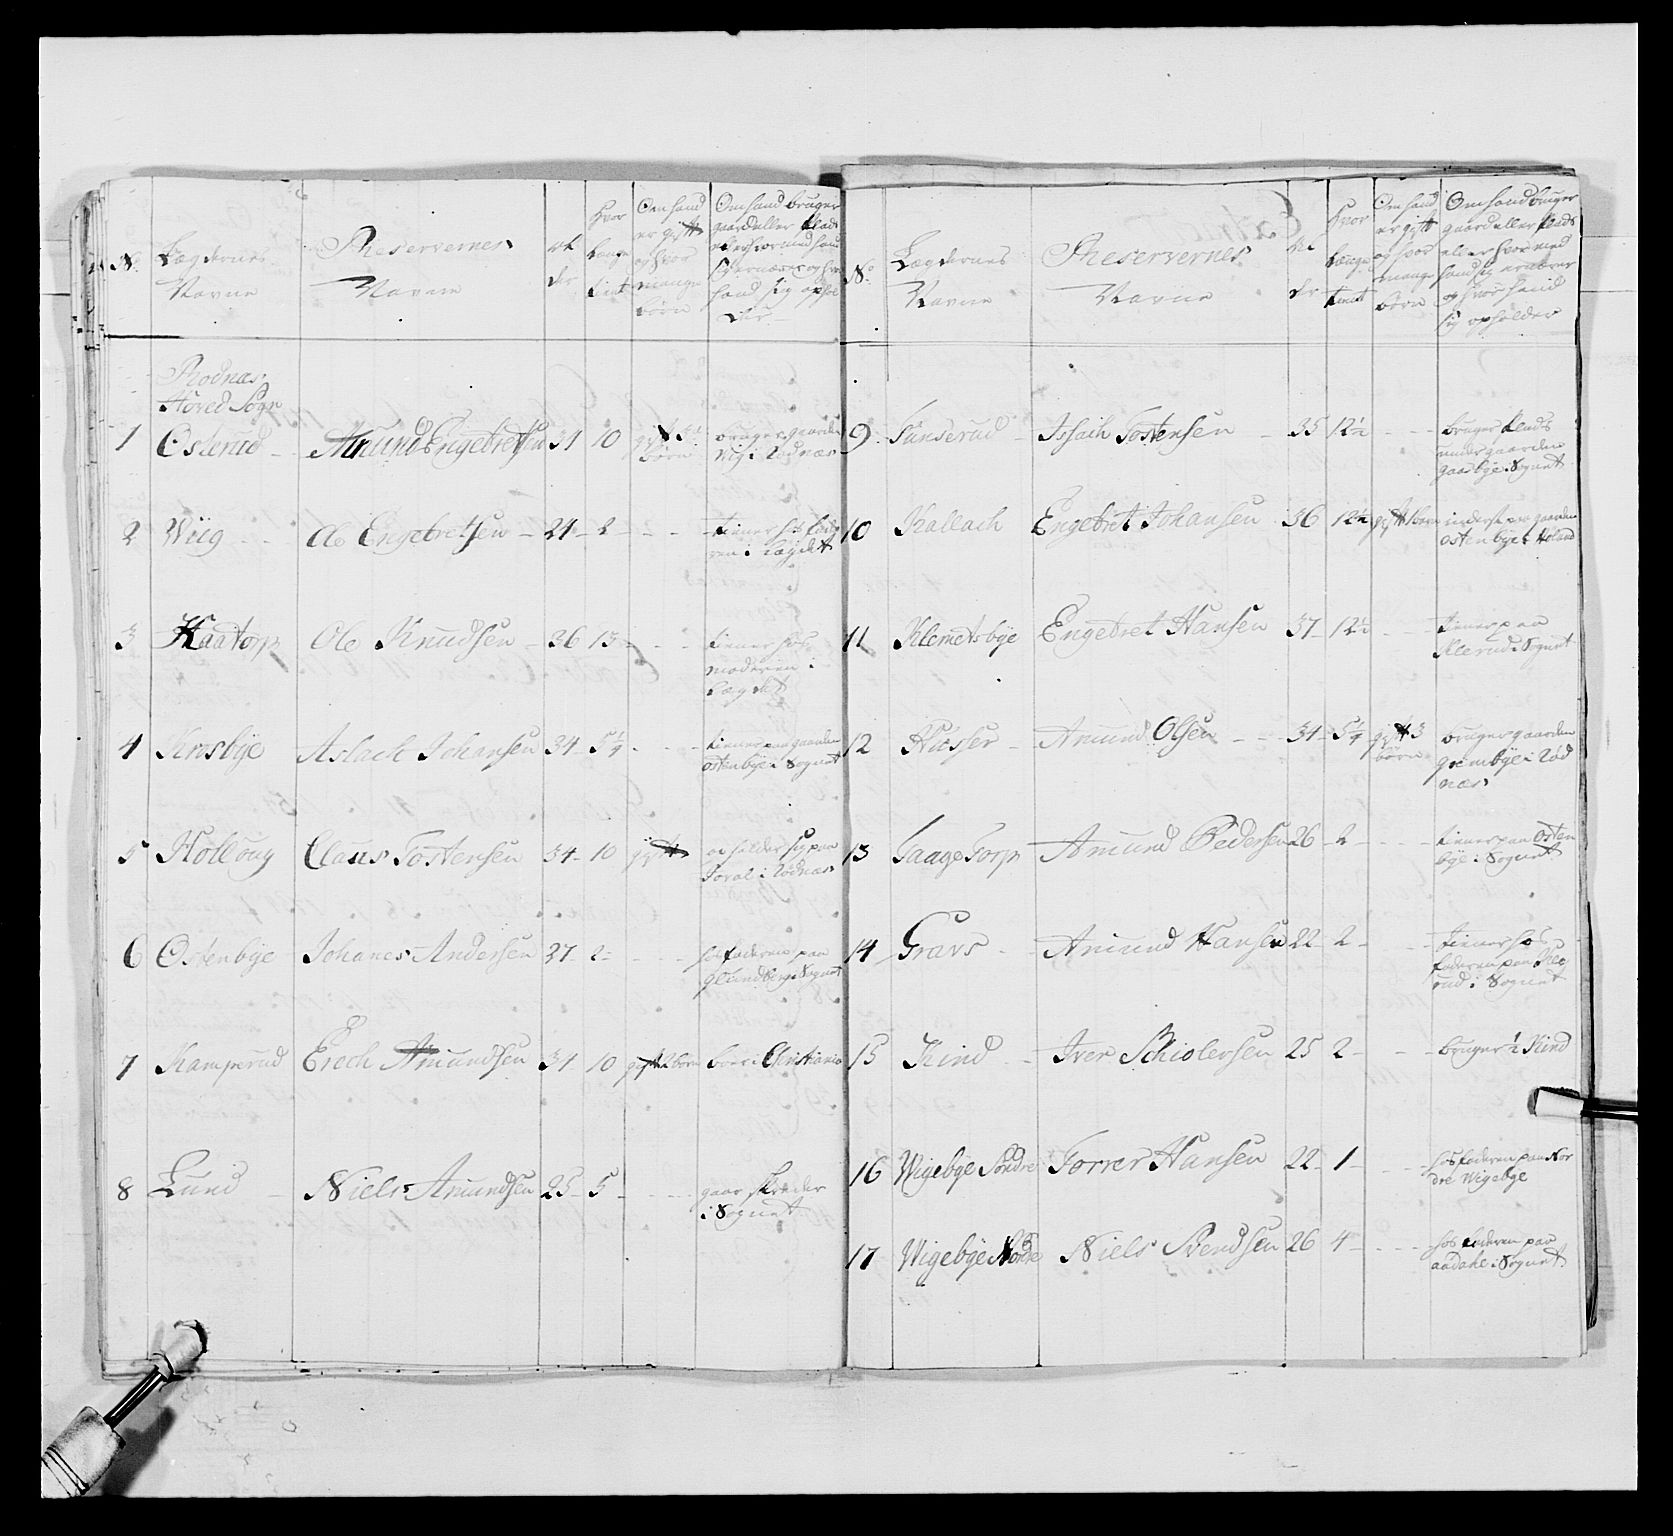 No.
Lægdernes
Navne
Reservernes
Navne
Al
der
Hvor
længe
tient
Om hand
er gift
og hvor
mange
børn
Om hand bruger
gaard eller Plads
eller hvormed hand
sig ernærer og hvor
hand sig ophol
der
Rodnæs
Hoved Sogn
1 Osterud Amund Engebretsen 31 10 gift 3 børn bruger gaarden Vig i Rodnæs
2 Wiig Ole Engebretsen 21 2 tiener hos fade ren i Lægdet
3 Kaatorp Ole Knudsen 26 13 tiener hos moderen i Lægdet
4 Krosbye Aslach Johansen 34 5¼ tiener paa gaarden ostenbye i Sognet
5 Holløug Claus Tostensen 34 10 gift opholder sig paa i Rodnæs
6 Ostenbye Johanes Andersen 27 2 hos faderen paa i Sognet
7 Kamperud Erech Amundsen 31 10 gift 2 børn boer i Christiania
8 Lund Niels Amundsen 25 5 gaar skreder i Sognet
No.
Lægdernes
Navne
Reservernes
Navne
Al
der
Hvor
længe
tient
Om hand
er gift
og hvor
mange
børn
Om hand bruger
gaard eller Plads
eller hvor med
hand sig ernærer
og hvor hand
sig opholder
9 Funserud Issach Tostensen 35 12½ bruger Plads under gaarden Gaasbye i Sognet
10 Kallach Engebret Johansen 36 12½ gift 1 barn inderst paa gaarden ostenbye i Høland
11 Klemetsbye Engebret Hansen 37 12½ tiener paa Klerud i Sognet
12 Amund Olsen 31 5¼ gift 3 børn bruger gaarden grembye i Rod næs
13 Taage Torp Amund Pedersen 26 2 tiener paa Osten bye i Sognet
14 Gravs Amund Hansen 22 2 tiener hos faderen paa Kle rud i Sognet
15 Kind Iver Schiolersen 25 2 bruger ½ Kind
16 Wigebye Søndre Torrer Hansen 22 1 hos faderen paa Nor dre Wigebye
17 Wigebye Nordre Niels Svendsen 26 4 hos faderen paa aadahl i Sognet